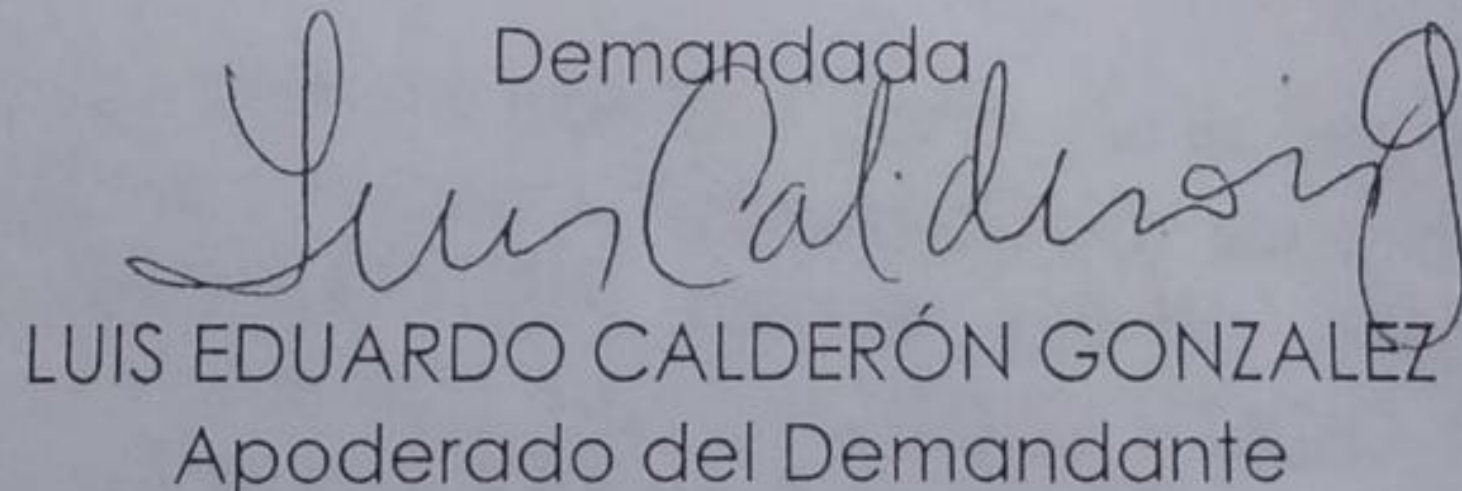 Demandada
Luis Calderon G
LUIS EDUARDO CALDERÓN GONZALEZ
Apoderado del Demandante